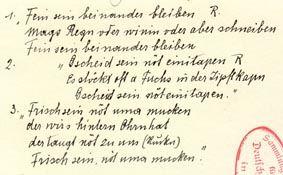 1., Fein sein beinander bleiben R.
Mags Regn oder winin oder aber schneiben
Fein sein beinander bleiben
2. " Gscheid sein nöt einitapen R
Es stickt oft a Fuchs in der Zipflkapn
Gscheid sein nöt einitapen. "
3. " Frisch sein nöt uma mucken
der wirs hintern Ohrn hat
der taugt nöt zu uns
Frisch sein, nöt uma mucken. "
Sammlung
Deutsche
in